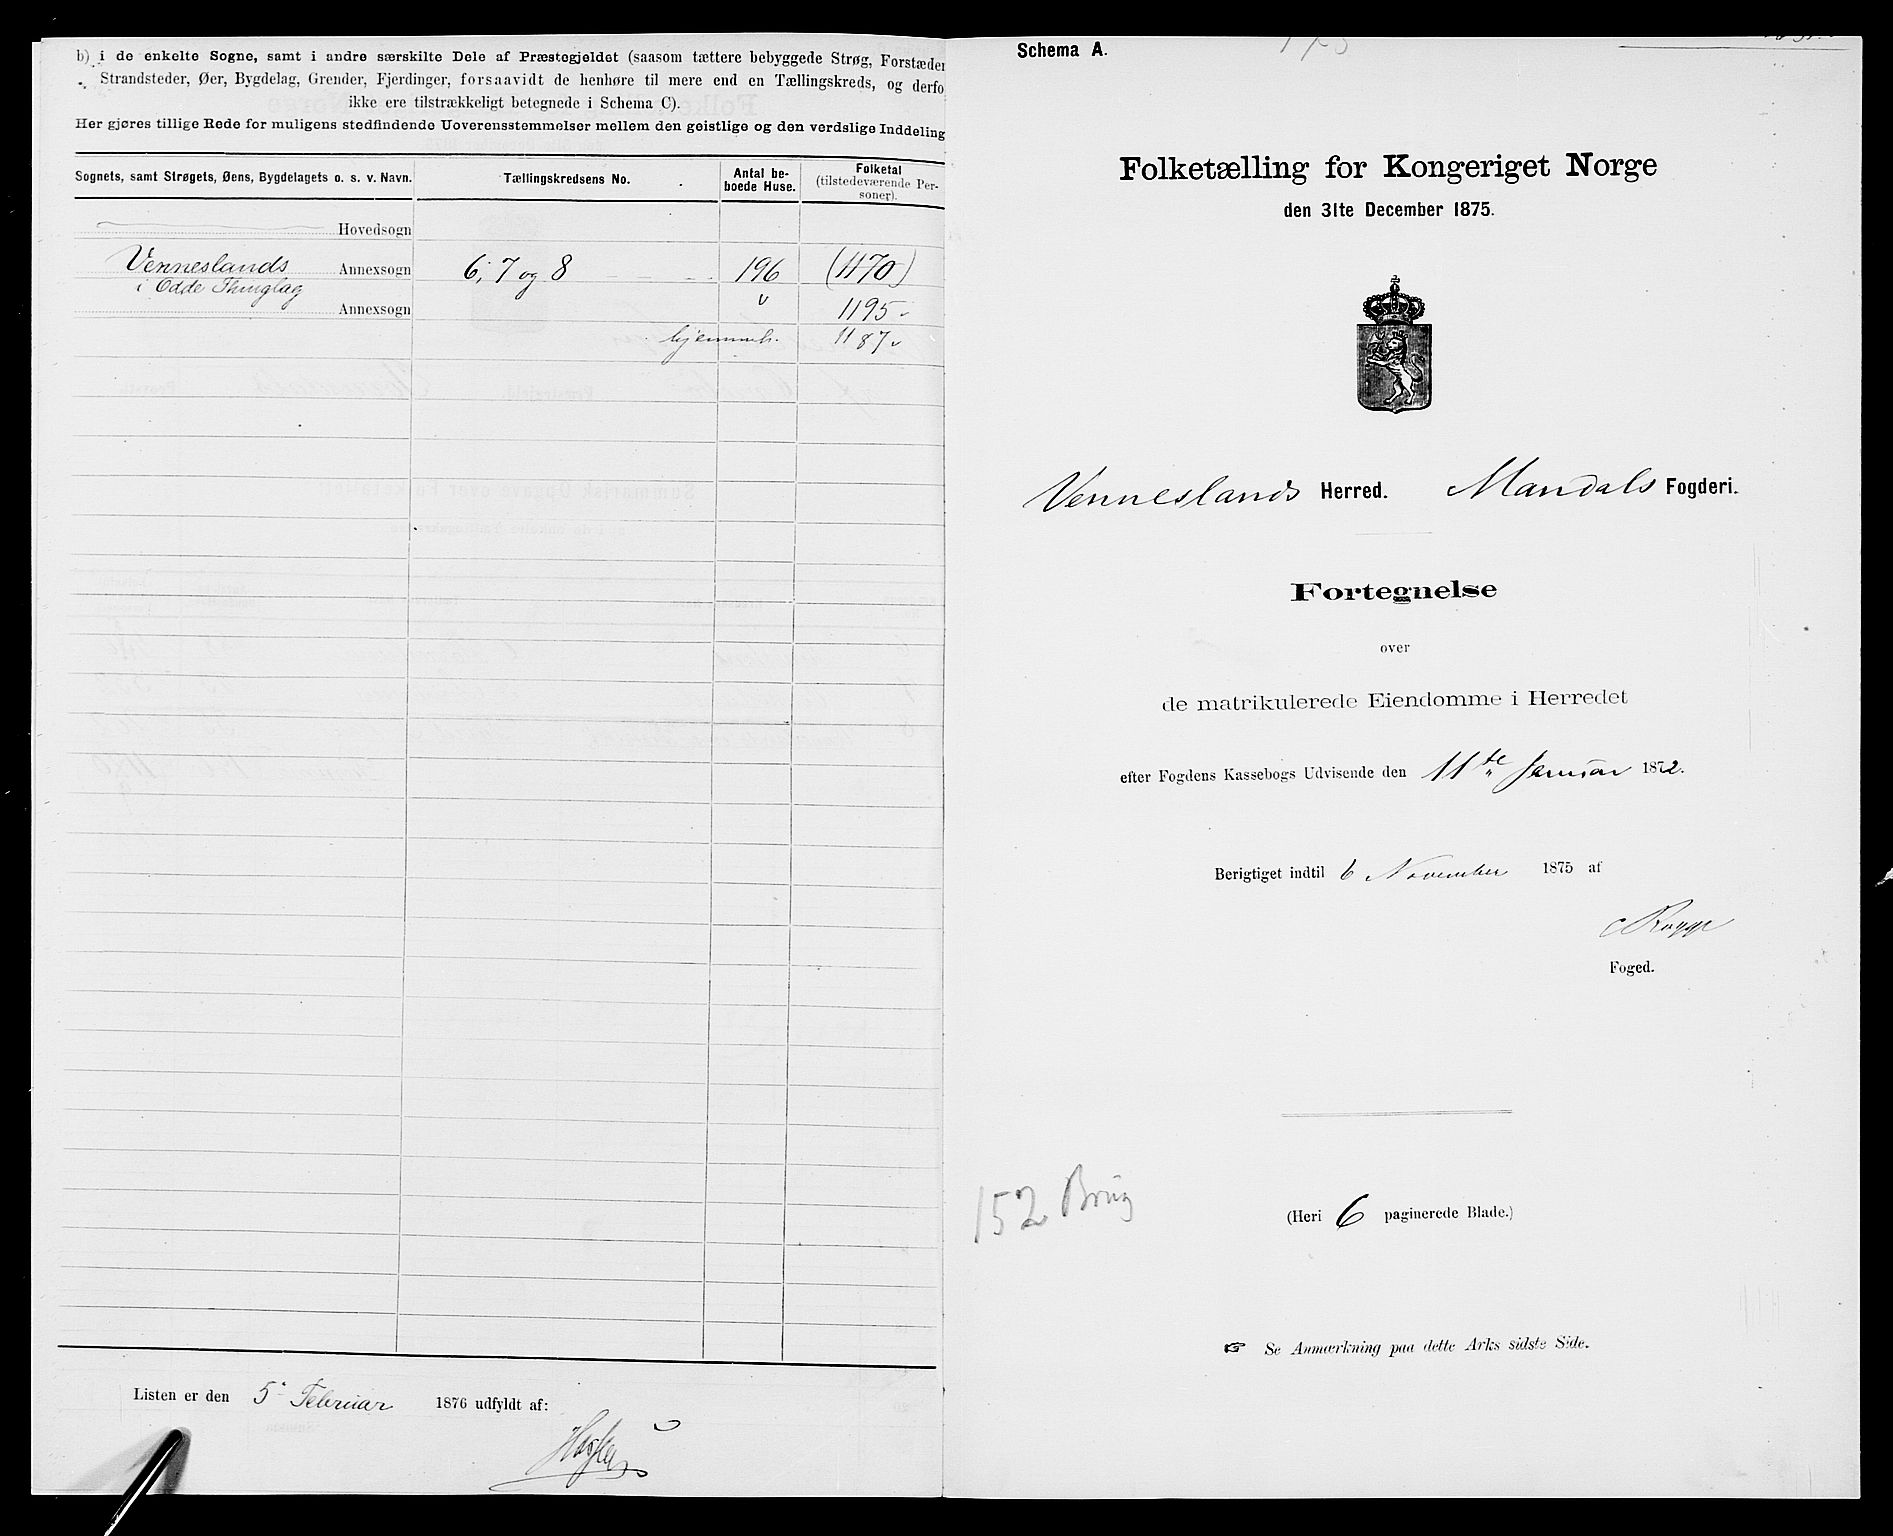 b) i de enkelte Sogne, samt i andre særskilte Dele af Præstegjeldet (saasom tættere bebyggede Strøg, Forstæder
Strandsteder, Øer, Bygdelag, Grender, Fjerdinger, forsaavidt de henhøre til mere end en Tællingskreds, og derfo
ikke ere tilstrækkeligt betegnede i Schema C).
Her gjøres tillige Rede for muligens stedfindende Uoverensstemmelser mellem den geistlige og den verdslige Inddeling
Sognets, samt Strøgets, Øens, Bygdelagets o. s. v. Navn.
Tællingskredsens No.
Antal be-
boede Huse.
Folketal
(tilstedeværende Per-
soner).
Hovedsogn
Venneslands Annexsogn 6, 7 og 8 196 (1170)
i Odde Thinglag
Annexsogn 1195
hjemmeh. 1187
Listen er den 5 Februar 1876 udfyldt af:
Schema A.
Folketælling for Kongeriget Norge
den 31te December 1875.
Venneslands Herred. Mandals Fogderi.
Fortegnelse
over
de matrikulerede Eiendomme i Herredet
efter Fogdens Kassebogs Udvisende den 11te Januar 1872.
Berigtiget indtil 6 November 1875 af
Rogge
Foged.
152 Brug
(Heri 6 paginerede Blade.)
☞ Se Anmærkning paa dette Arks sidste Side.